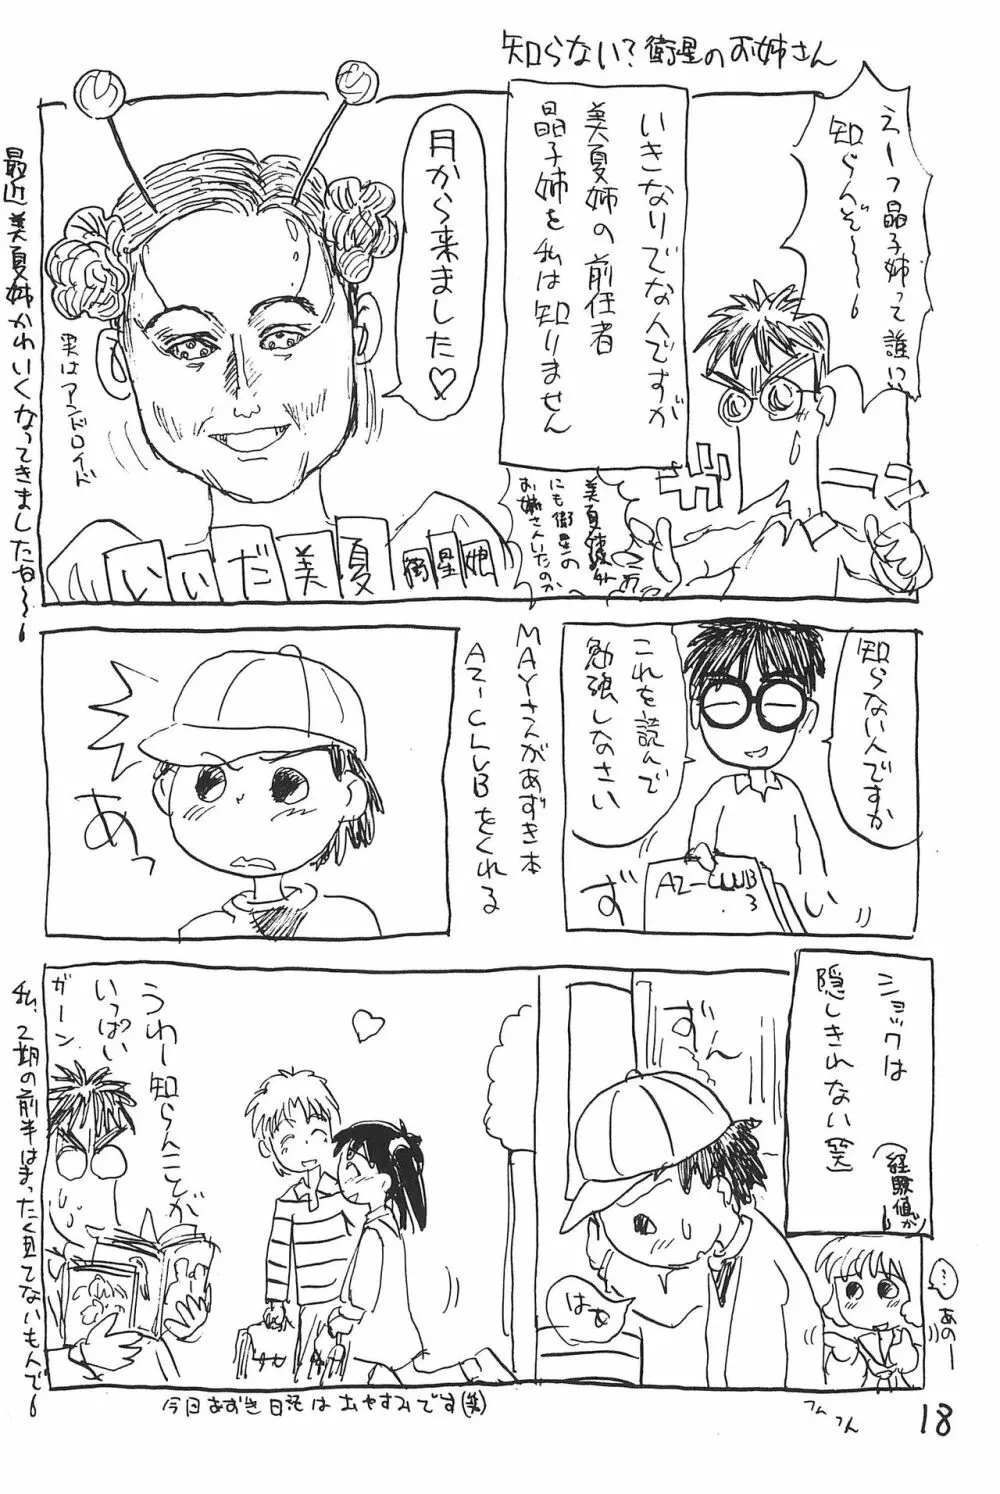 知らない?衛星のお姉さん
えーっ晶子姉って誰に
知らんぞ〜〜
いきなりでなんですが
美夏姉の前任者
晶子姉を私は知りません
ガーン
美夏姉以外
にも衛星の
お姉さんいたのか
月から来ました♡
実はアンドロイド
いいだ美夏
衛星娘
最近美夏姉かわいくなってきましたね〜〜
知らないんですか
これを読んで
勉強しなさい
AZ-CLUB
3
ずい
MAYさんがあずき本
AZ-CLUBをくれる
あっ
ショックは
隠しきれない(笑)
(経験値が)
ずーん
はぁ
…
あのー
フムフム
うわー知らんことが
いっぱい
ガーン
私、2期の前半はまったく見てないもんで〜
今日あずき日記はおやすみです(笑)
18